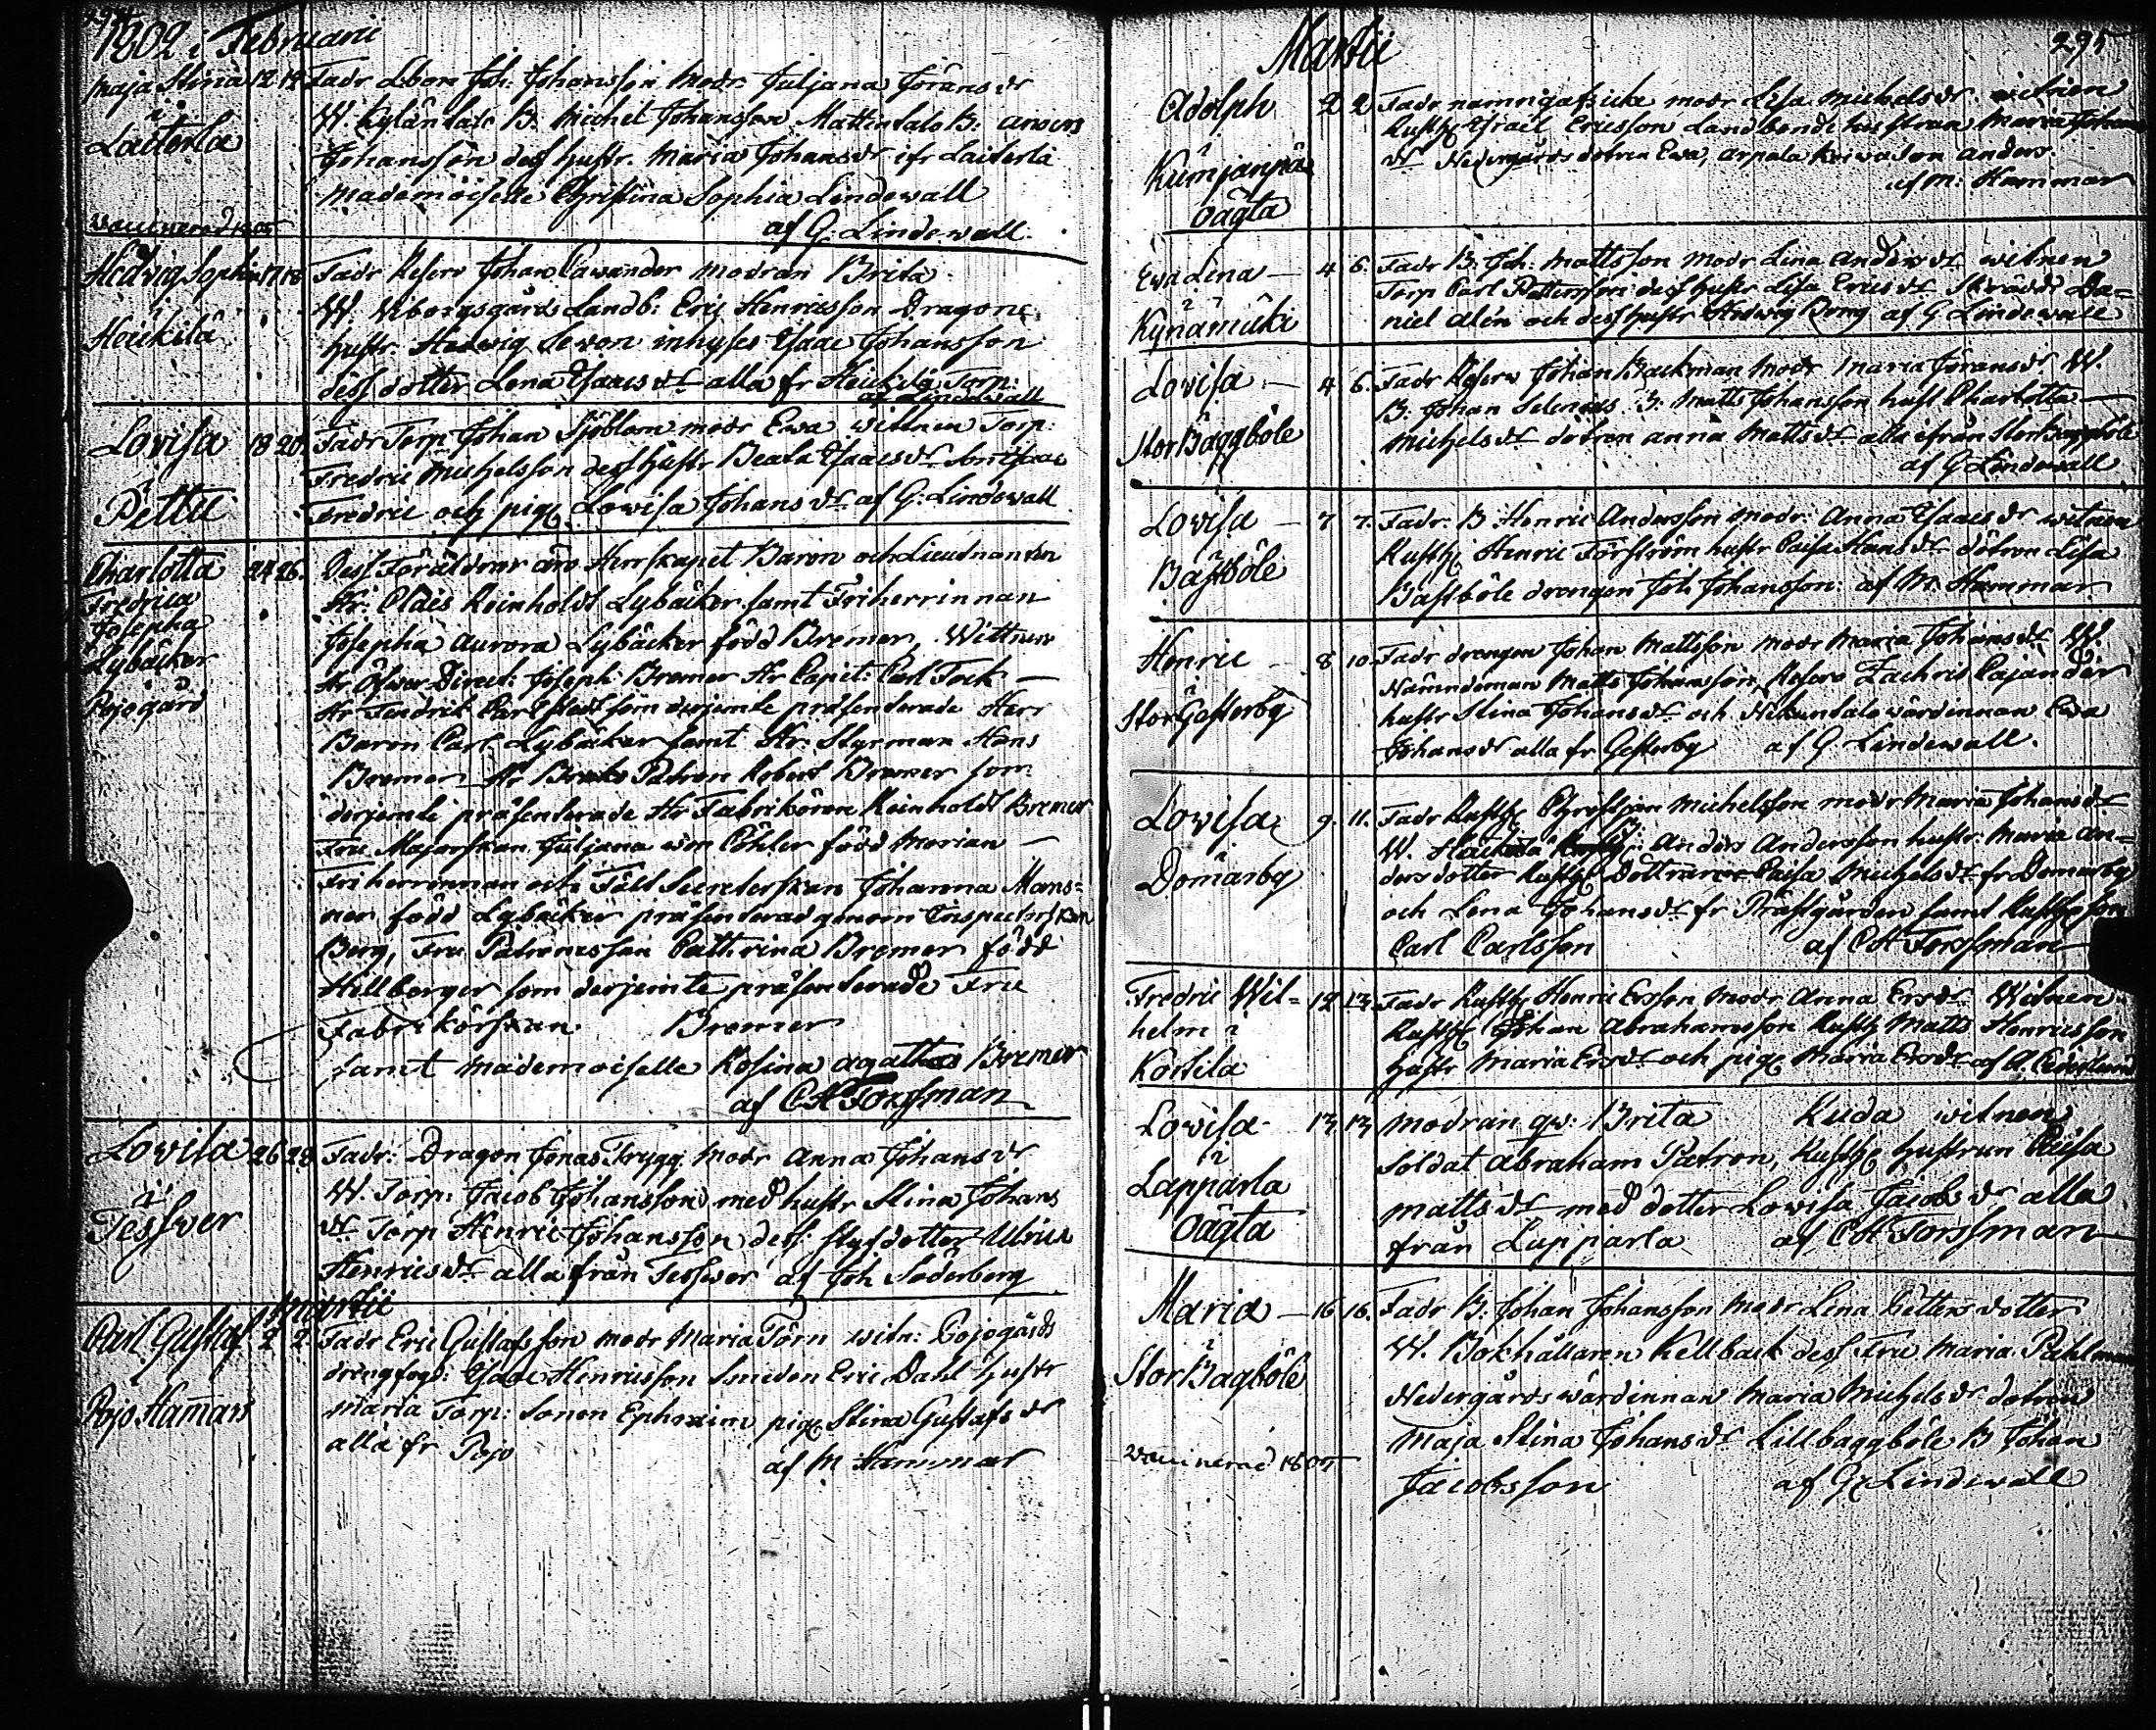 294
1802 i Februarii
Maja Stina 12 14 Fadr Lbon Joh: Johansson Modr Juljana Jörans dr
i
Laiterla
W. Kylänsalo B. Michel Johansson Mattensalo B: Anders
Johansson dess hustr. Maria Johans dr ifr Laiterla
Mademoiselle Christina Sophia Lindewall
Vaccinerad 1805 af G. Lindewall
Hedvig Sophia 17 18 Fadr Reserv Johan Cavander modran Brita
i
Heikkilä
W. Wiborgsgårds Landb: Eric Henricsson Dragons
hustr. Hedwig Lewon inhyses Isaac Johansson
dess dotter Lena Isaacs dr alla fr Heikkilä Torp:
af Lindewall
Lovisa 18 20. Fadr Torp Johan Sjöblom modr Ewa wittnen Torp:
i
Pettu
Fredric Michelsson dess hustr Beata Isaacs dr Son Isaac
Fredric och pig. Lowisa Johans dr af G: Lindewall
Charlotta 24 26. Dess Föräldrar äro Herrskapet Baron och Lieutnanten
Fredrica
Josepha
Lybäcker
i
Pojogård
Hr: Claës Reinholdt Lybäcker samt Friherrinnan
Josepha Aurora Lybäcker född Bremer, Wittnen
Hr Öfwer Direct: Joseph Bremer Hr Capit: Carl Tock —
Hr Fendrik Carlstedt som derjemte präsenterade Herr
Baron Carl Lybäcker samt Hr. Styrman Hans
Bremer Hr Bruks Patron Robert Bremer som
derjemte präsenterade Hr Fabrikören Reinholdt Bremer
Fru Majorskan Juljana von Cöhler född Morian —
Friherrinnan och Fält Secreterskan Johanna Mans=
ner född Lybäcker präsenterad genom Inspectorskan
Berg, Fru Patronessan Cathrina Bremer född
Hillberger som derjemte präsenterade Fru
Fabrikörskan Bremer
samt mademoiselle Rosina Agatha Bremer
af C H Forssman
Lovisa 26 28 Fadr: Dragon Jonas Trygg Modr Anna Johans dr
i
Tesswer
W. Torp: Jacob Johansson med hustr Stina Johans
dr Torp Henric Johansson dess stufdotter Ulrica
Henrics dr alla från Tesswer af Joh Söderberg
Martii
Carl Gustaf 2 2 Fadr Eric Gustafsson modr Maria Törn witn: Pojogårds
i
Pojo Hammars
drengfogd: Isaac Henricsson Smeden Eric Dahl hustr
Maria Torp: Sonen Ephraim pig Stina Gustafs dr
alla fr Pojo af M Hammar
Martii 295
Adolph 2 2 Fadr namngafs icke modr Lisa Michels dr witnen
i
oägta
Rusth Israel Ericsson Landbonde hustrun Maria Johans
dr Nedergårds dotren Ewa, Arpala Son Anders.
af M: Hammar
Ewa Lena — 4 6. Fadr B. Joh. Mattsson Modr Lina Anders dr witnen
i
Kynämäki
Torp Carl Pettersson dess hustr Lisa Erics dr Skrädd Da=
niel Alén och dess hustr Hedwig Bong af G Lindewall
Lovisa — 4 6. Fadr Reserv Johan Backman Modr Maria Jörans dr W.
i
Stor Bäggböle
B: Johan Selenius B: Matts Johansson hust Charlotta —
Michels dr dotren Anna Matts dr alla ifrån Stor Bäggböle
af G Lindewall
Lovisa — 7 7. Fadr: B Henric Andersson modr: Anna Isaacs dr witnen
i
Bästböle
Rusth Henric Förström hustr Caisa Hans dr dotren Lisa
Bästböle drengen Joh Johansson: af M. Hammar.
Henric — 8 10 Fadr drengen Johan Mattsson Modr Maria Johans dr W.
i
Stor Gesterby
Nämndeman Matts Johansson, Reserv Zachris Cajander
hustr Stina Johans dr och wärdinnan Ewa
Johans dr alla fr Gesterby af G Lindewall.
Lovisa 9. 11. Fadr Rusth Christjan Michelsson modr Maria Johans dr
i
Domarby
W. Anders Andersson hustr: Maria An=
ders dotter Rusth Caisa Michels dr fr Domarby
och Lena Johans dr fr Prästgården samt Rusth son
Carl Carlsson af C H Forssman
Fredric Wil= 12 13 Fadr Rusth Henric Ersson Modr Anna Ers dr Witnen
helm i
Koisila
Rusth Johan Abrahamsson Rusth Matts Henricsson
hustr Maria Ers dr och pig Maria Ers dr af A. Cederlund
Lovisa 13 13 modran qw: Brita Kuda witnen
i
Lapparla
oägta
Soldat Abraham Patron, Rusth hustrun Caisa
Matts dr med dotter Lovisa Jacobs dr alla
från Lapparla af C H Forssman
Maria — 16 16. Fadr B: Johan Johansson modr Lena Petters dotter
i
Stor Bagböle
W. Bokhållaren Kellback dess Fru Maria Pahlman
Nedergårds wärdinnan Maria Michels dr dotren
Maja Stina Johans dr Lillbaggböle B Johan
Vaccinerad 1805 Jacobsson af G Lindewall